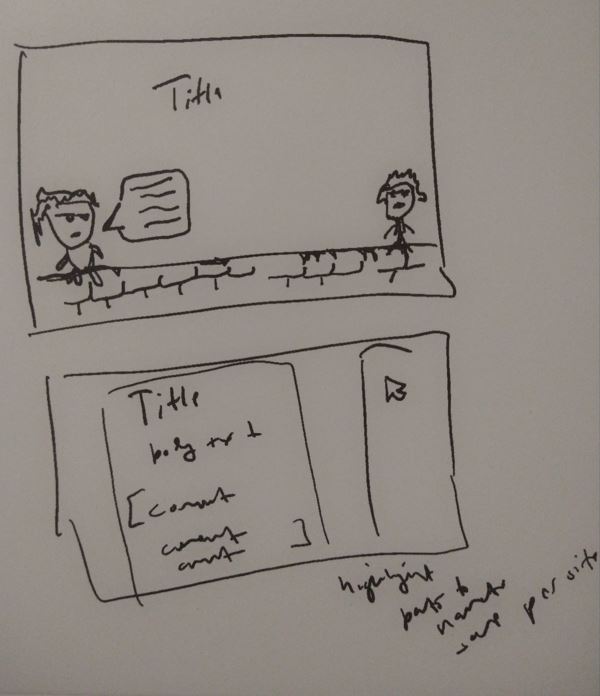 Title
Title
body text
[comment
comment ]
comment
highlight
parts to
narrate
save per site